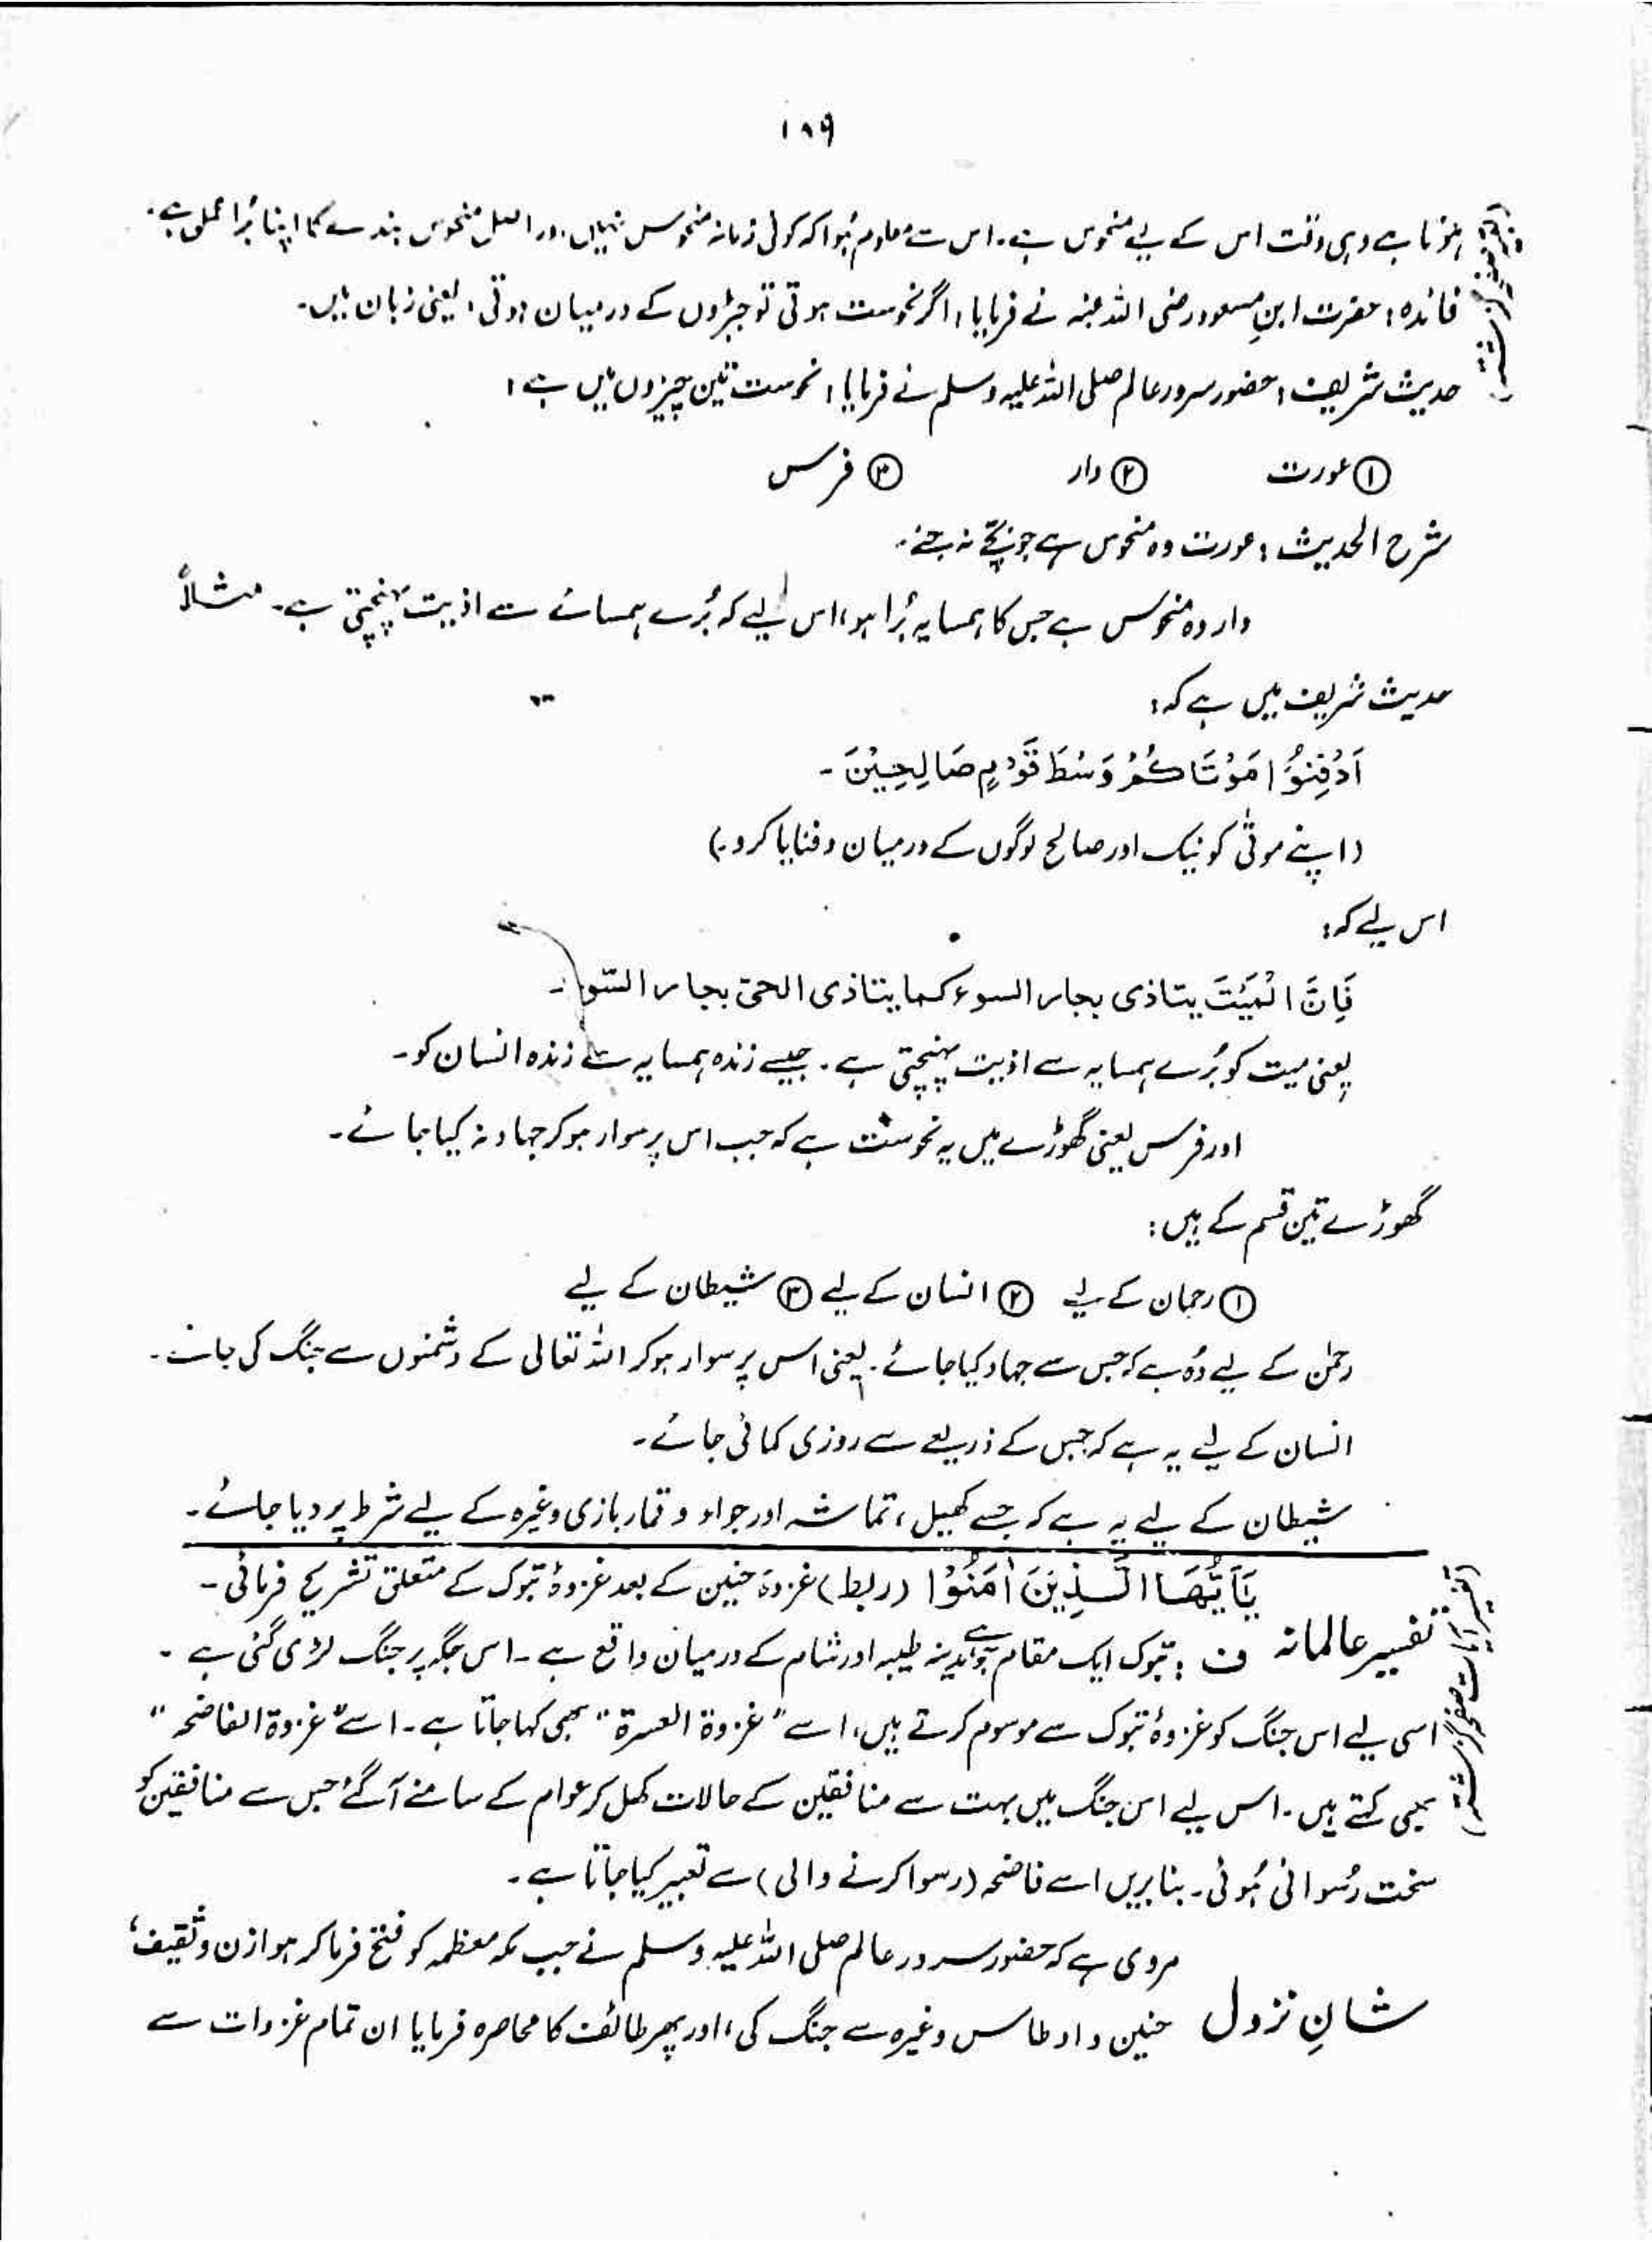 ۱۸۹
ہوتا ہے وہی وقت اس کے لیے منحوس ہے۔ اس سے معلوم ہُوا کہ کوئی زمانہ منحوس نہیں، دراصل منحوس بندے کا اپنا بُرا عمل ہے۔
فائدہ: حضرت ابنِ مسعود رضی اللہ عنہ نے فرمایا، اگر نحوست ہوتی تو جبڑوں کے درمیان ہوتی، یعنی زبان میں۔
حدیث شریف: حضور سرورِ عالم صلی اللہ علیہ وسلم نے فرمایا: نحوست تین چیزوں میں ہے:
① عورت ② دار ③ فرس
شرح الحدیث: عورت وہ منحوس ہے جو بچّے نہ جنے۔
دار وہ منحوس ہے جس کا ہمسایہ بُرا ہو، اس لیے کہ بُرے ہمسائے سے اذیت پہنچتی ہے۔ مثلاً
حدیث شریف میں ہے کہ:
اَدْفِنُوْا مَوْتَاكُمْ وَسْطَ قَوْمٍ صَالِحِيْنَ۔
(اپنے موتٰی کو نیک اور صالح لوگوں کے درمیان دفنایا کرو۔)
اس لیے کہ:
فَاِنَّ الْمَيِّتَ يتاذى بجار السوء كما يتاذى الحيّ بجار السّوء۔
یعنی میت کو بُرے ہمسایہ سے اذیت پہنچتی ہے۔ جیسے زندہ ہمسایہ سے زندہ انسان کو۔
اور فرس یعنی گھوڑے میں یہ نحوست ہے کہ جب اس پر سوار ہو کر جہاد نہ کیا جائے۔
گھوڑے تین قسم کے ہیں:
① رحمان کے لیے ② انسان کے لیے ③ شیطان کے لیے
رحمٰن کے لیے وُہ ہے کہ جس سے جہاد کیا جائے۔ یعنی اس پر سوار ہو کر اللہ تعالیٰ کے دشمنوں سے جنگ کی جائے۔
انسان کے لیے یہ ہے کہ جس کے ذریعے سے روزی کمائی جائے۔
شیطان کے لیے یہ ہے کہ جسے کھیل، تماشہ اور جواء و قمار بازی وغیرہ کے لیے شرط پر دیا جائے۔
(تفسیر آیات صفحہ گزشتہ)
يٰٓاَيُّهَا الَّذِيْنَ اٰمَنُوْا (ربط) غزوۂ حنین کے بعد غزوۂ تبوک کے متعلق تشریح فرمائی۔
تفسیر عالمانہ ف: تبوک ایک مقام ہے جو مدینہ طیبہ اور شام کے درمیان واقع ہے۔ اس جگہ پر جنگ لڑی گئی ہے۔
اسی لیے اس جنگ کو غزوۂ تبوک سے موسوم کرتے ہیں، اسے "غزوۃ العسرۃ" بھی کہا جاتا ہے۔ اسے "غزوۃ الفاضحہ"
بھی کہتے ہیں۔ اس لیے اس جنگ میں بہت سے منافقین کے حالات کھل کر عوام کے سامنے آگئے جس سے منافقین کو
سخت رُسوائی ہُوئی۔ بنابریں اسے فاضحہ (رسوا کرنے والی) سے تعبیر کیا جاتا ہے۔
مروی ہے کہ حضور سرورِ عالم صلی اللہ علیہ وسلم نے جب مکہ معظمہ کو فتح فرما کر ہوازن و ثقیف،
شانِ نزول حنین و اوطاس وغیرہ سے جنگ کی، اور پھر طائف کا محاصرہ فرمایا ان تمام غزوات سے